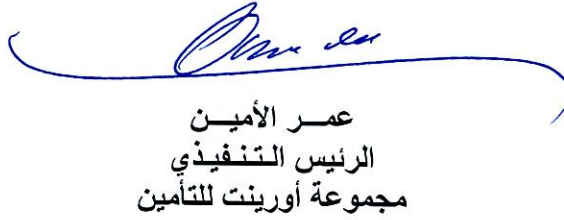 عمـــر الأميـــن
الرئيس التنفيذي
مجموعة أورينت للتأمين